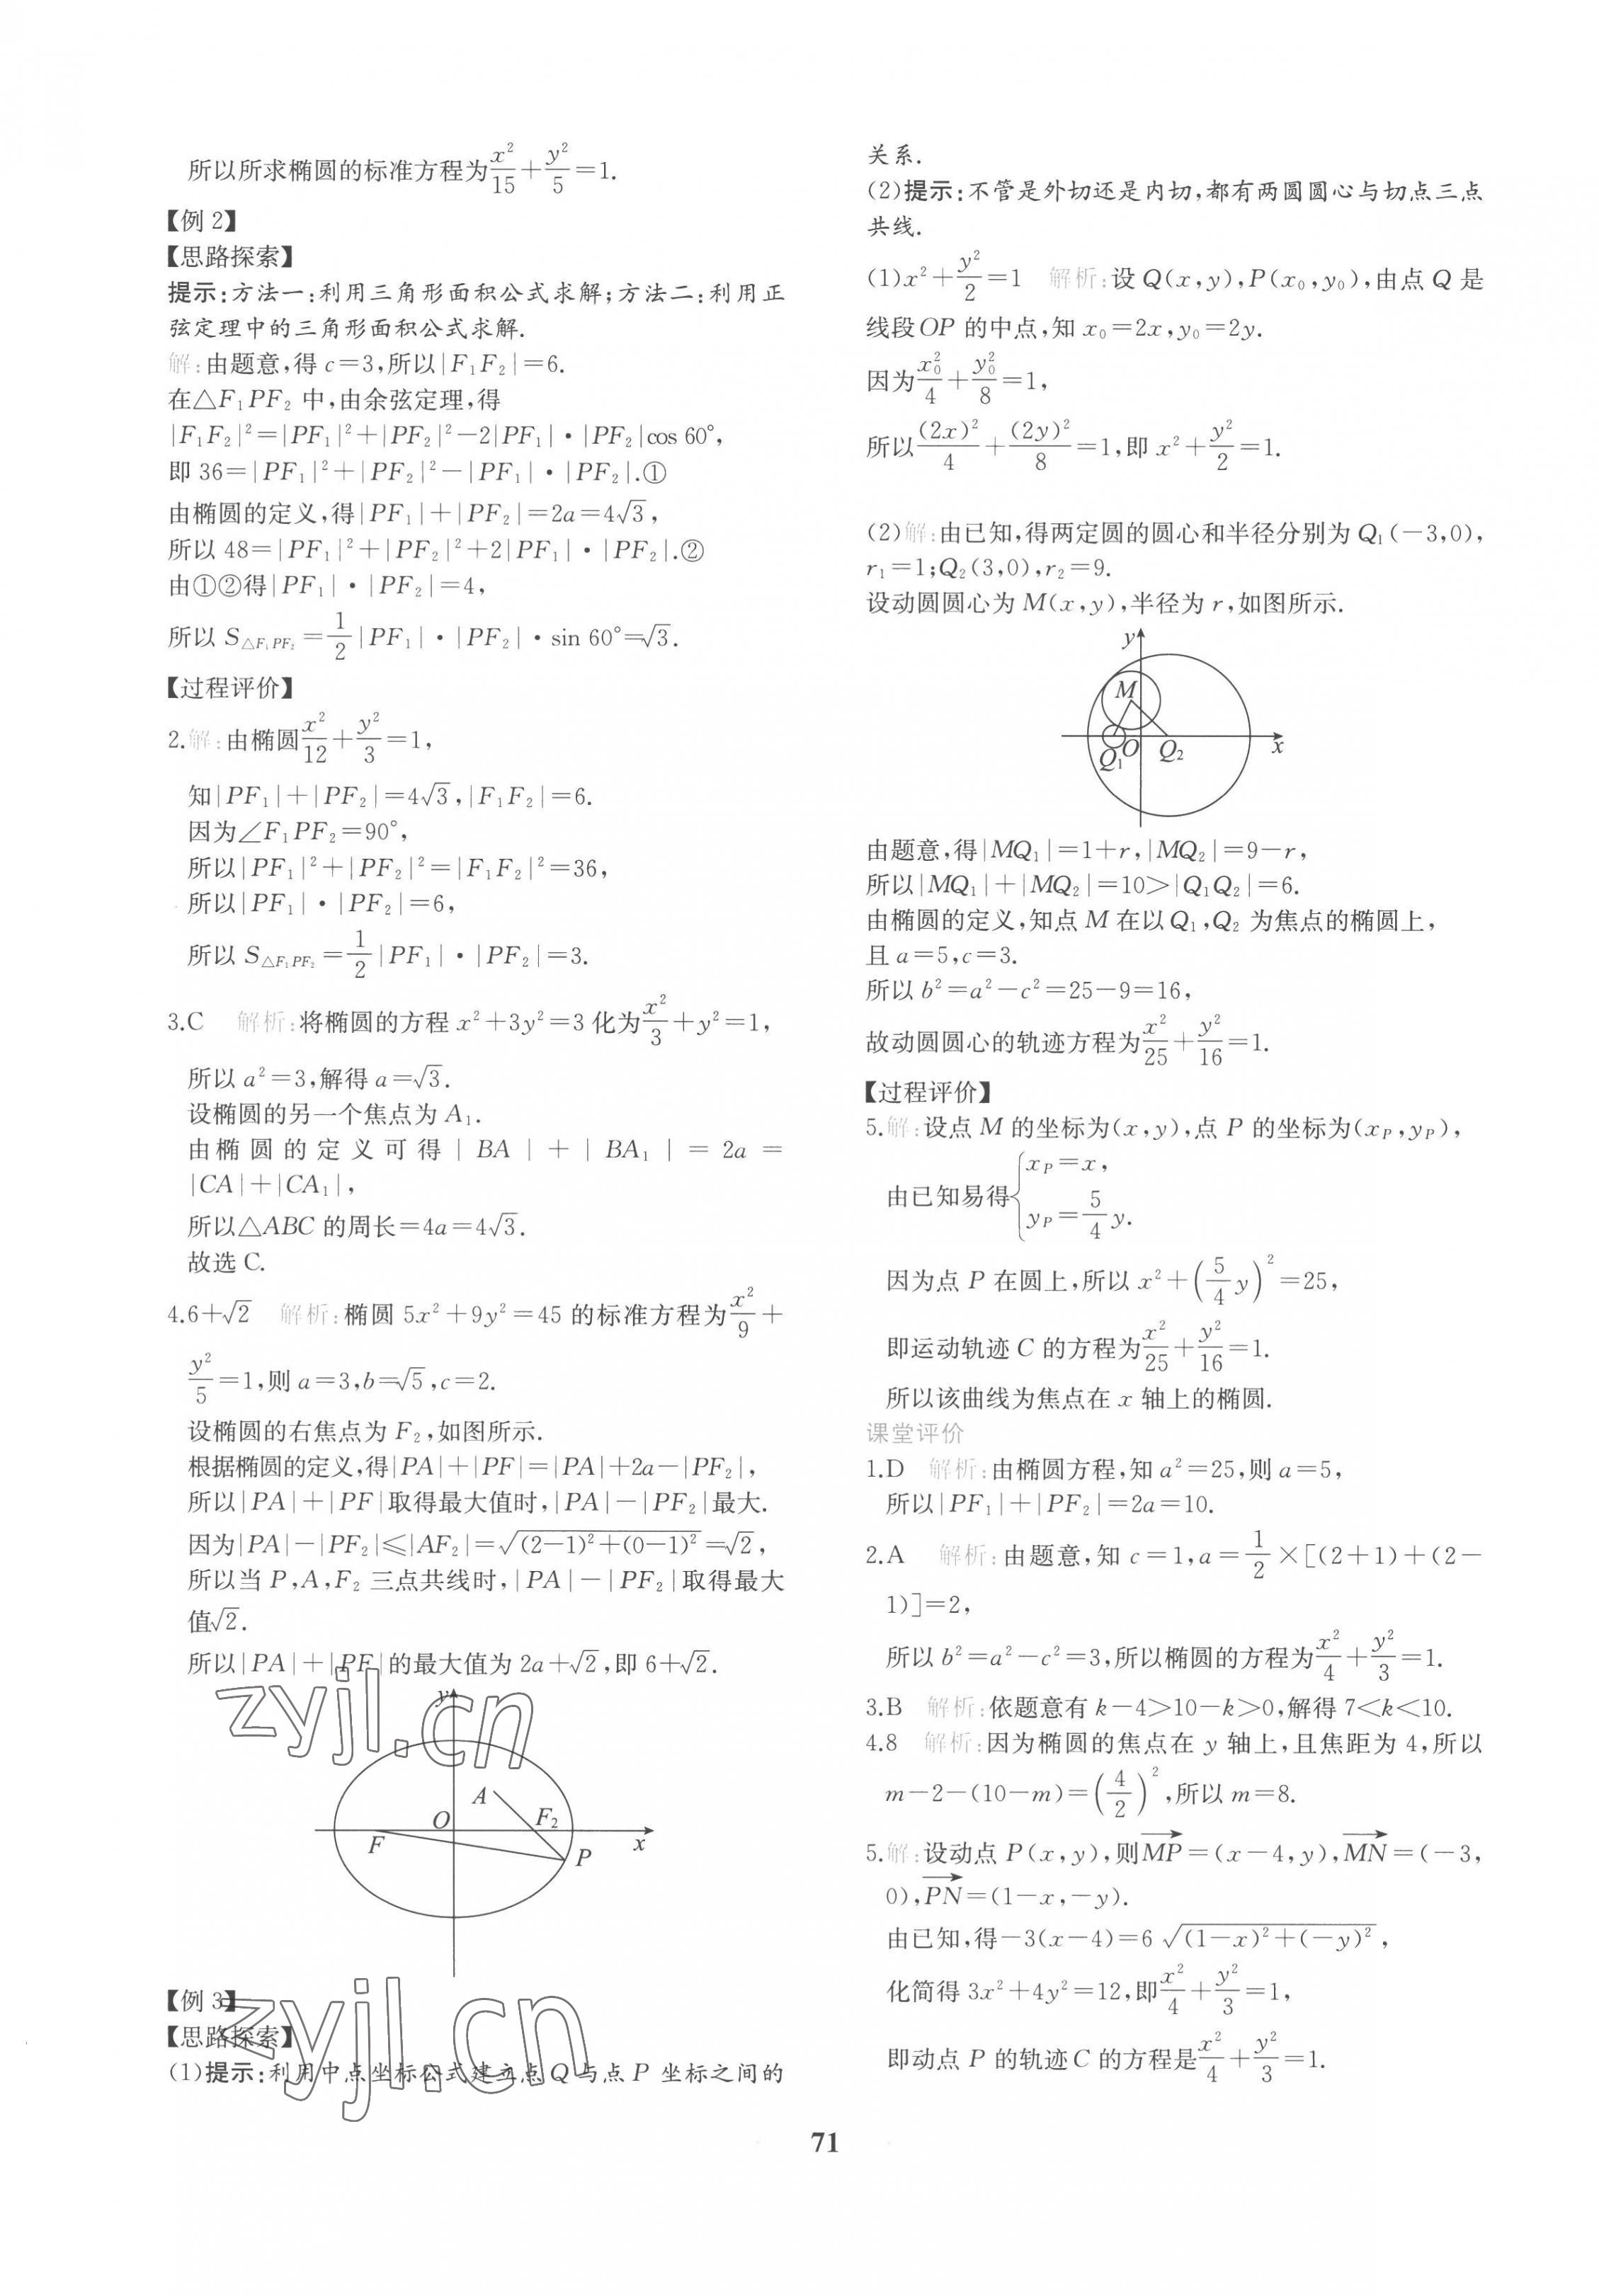 所以所求椭圆的标准方程为x²/15+y²/5=1.
【例2】
【思路探索】
提示:方法一:利用三角形面积公式求解;方法二:利用正
弦定理中的三角形面积公式求解.
解:由题意,得c=3,所以|F₁F₂|=6.
在△F₁PF₂中,由余弦定理,得
|F₁F₂|²=|PF₁|²+|PF₂|²-2|PF₁|·|PF₂|cos 60°,
即36=|PF₁|²+|PF₂|²-|PF₁|·|PF₂|.①
由椭圆的定义,得|PF₁|+|PF₂|=2a=4√3,
所以48=|PF₁|²+|PF₂|²+2|PF₁|·|PF₂|.②
由①②得|PF₁|·|PF₂|=4,
所以S△F₁PF₂=1/2|PF₁|·|PF₂|·sin 60°=√3.
【过程评价】
2.解:由椭圆x²/12+y²/3=1,
知|PF₁|+|PF₂|=4√3,|F₁F₂|=6.
因为∠F₁PF₂=90°,
所以|PF₁|²+|PF₂|²=|F₁F₂|²=36,
所以|PF₁|·|PF₂|=6,
所以S△F₁PF₂=1/2|PF₁|·|PF₂|=3.
3.C 解析:将椭圆的方程x²+3y²=3化为x²/3+y²=1,
所以a²=3,解得a=√3.
设椭圆的另一个焦点为A₁.
由椭圆的定义可得|BA|+|BA₁|=2a=
|CA|+|CA₁|,
所以△ABC的周长=4a=4√3.
故选C.
4.6+√2 解析:椭圆5x²+9y²=45的标准方程为x²/9+
y²/5=1,则a=3,b=√5,c=2.
设椭圆的右焦点为F₂,如图所示.
根据椭圆的定义,得|PA|+|PF|=|PA|+2a-|PF₂|,
所以|PA|+|PF|取得最大值时,|PA|-|PF₂|最大.
因为|PA|-|PF₂|≤|AF₂|=√((2-1)²+(0-1)²)=√2,
所以当P,A,F₂三点共线时,|PA|-|PF₂|取得最大
值√2.
所以|PA|+|PF|的最大值为2a+√2,即6+√2.
zyjl.cn
y
A
O
F₂
F
P
x
【例3】
【思路探索】
zyjl.cn
(1)提示:利用中点坐标公式建立点Q与点P坐标之间的
关系.
(2)提示:不管是外切还是内切,都有两圆圆心与切点三点
共线.
(1)x²+y²/2=1 解析:设Q(x,y),P(x₀,y₀),由点Q是
线段OP的中点,知x₀=2x,y₀=2y.
因为x₀²/4+y₀²/8=1,
所以(2x)²/4+(2y)²/8=1,即x²+y²/2=1.
(2)解:由已知,得两定圆的圆心和半径分别为Q₁(-3,0),
r₁=1;Q₂(3,0),r₂=9.
设动圆圆心为M(x,y),半径为r,如图所示.
y
M
Q₁
O
Q₂
x
由题意,得|MQ₁|=1+r,|MQ₂|=9-r,
所以|MQ₁|+|MQ₂|=10>|Q₁Q₂|=6.
由椭圆的定义,知点M在以Q₁,Q₂为焦点的椭圆上,
且a=5,c=3.
所以b²=a²-c²=25-9=16,
故动圆圆心的轨迹方程为x²/25+y²/16=1.
【过程评价】
5.解:设点M的坐标为(x,y),点P的坐标为(xP,yP),
由已知易得{xP=x,
yP=5/4y.
因为点P在圆上,所以x²+(5/4y)²=25,
即运动轨迹C的方程为x²/25+y²/16=1.
所以该曲线为焦点在x轴上的椭圆.
课堂评价
1.D 解析:由椭圆方程,知a²=25,则a=5,
所以|PF₁|+|PF₂|=2a=10.
2.A 解析:由题意,知c=1,a=1/2×[(2+1)+(2-
1)]=2,
所以b²=a²-c²=3,所以椭圆的方程为x²/4+y²/3=1.
3.B 解析:依题意有k-4>10-k>0,解得7<k<10.
4.8 解析:因为椭圆的焦点在y轴上,且焦距为4,所以
m-2-(10-m)=(4/2)²,所以m=8.
5.解:设动点P(x,y),则MP→=(x-4,y),MN→=(-3,
0),PN→=(1-x,-y).
由已知,得-3(x-4)=6√((1-x)²+(-y)²),
化简得3x²+4y²=12,即x²/4+y²/3=1,
即动点P的轨迹C的方程是x²/4+y²/3=1.
71